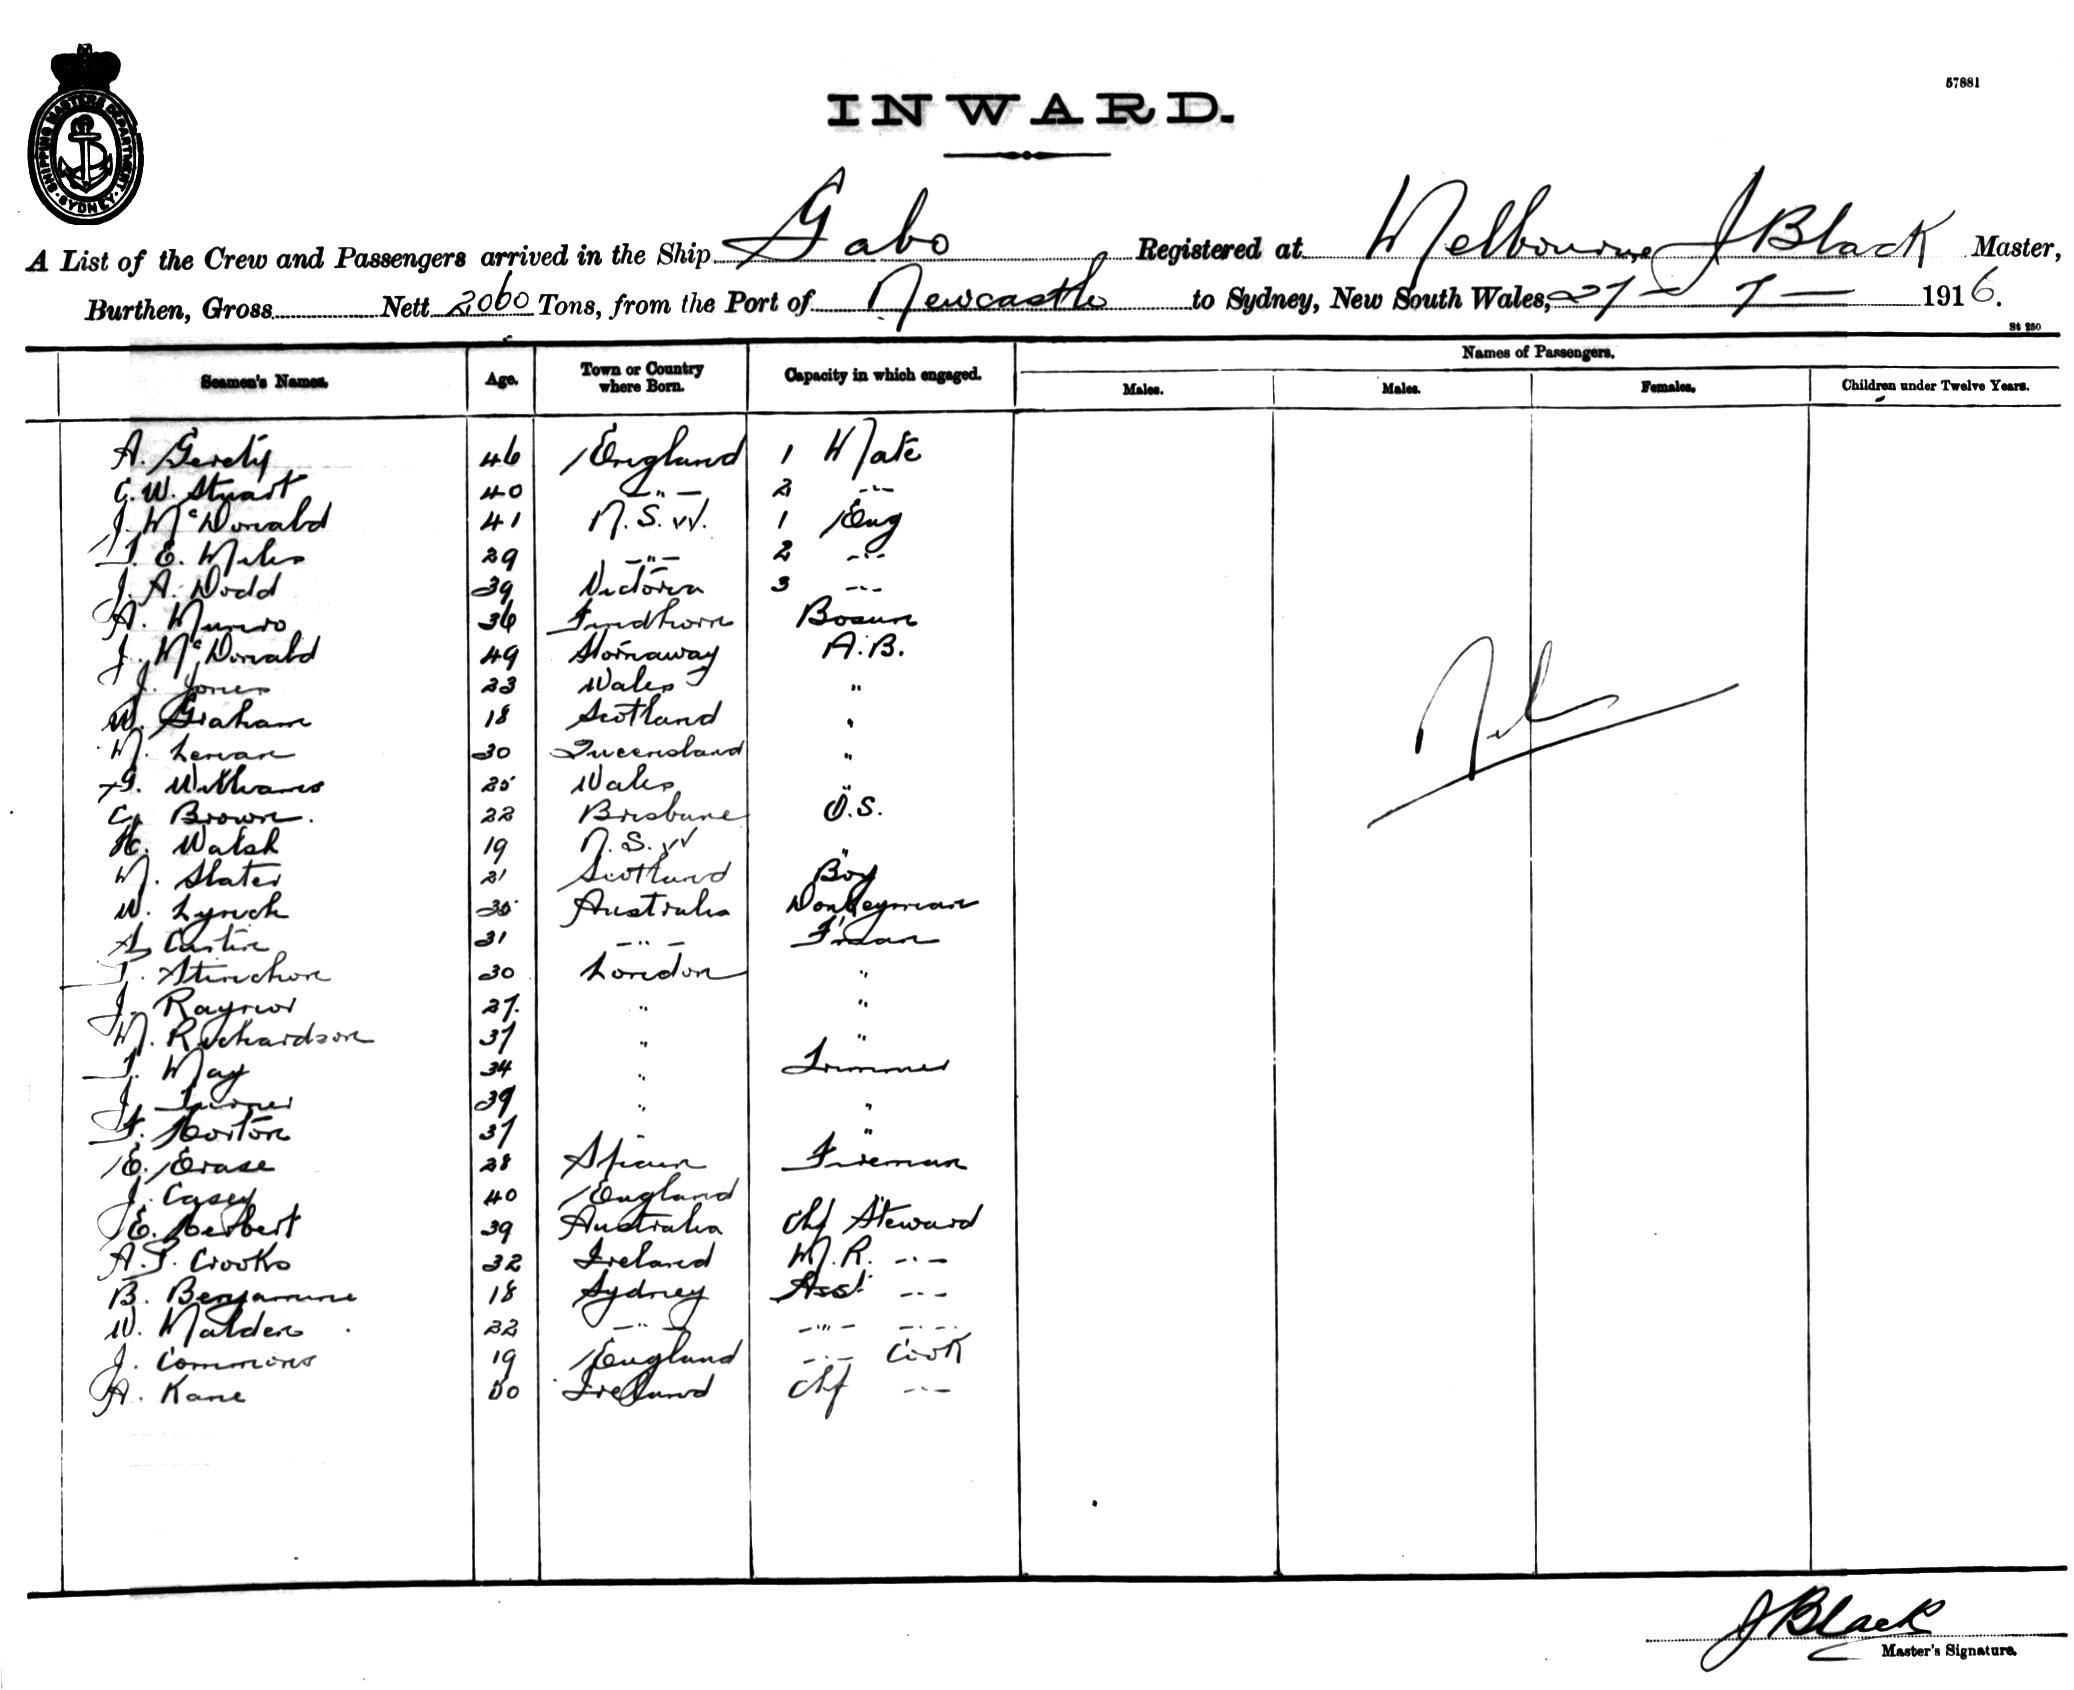 SHIPPING MASTERS DEPARTMENT
SYDNEY
57881
INWARD.
A List of the Crew and Passengers arrived in the Ship Gabo Registered at Melbourne J Black Master,
Burthen, Gross Nett 2060 Tons, from the Port of Newcastle to Sydney, New South Wales, 27 - 7 - 1916.
St 250
Seamen's Names. Age. Town or Country where Born. Capacity in which engaged. Names of Passengers.
Males. Males. Females. Children under Twelve Years.
A. Gerety 46 England 1 Mate
C. W. Stuart 40 -"- 2 -"-
J. McDonald 41 N.S.W. 1 Eng
T. E. Miles 29 -"- 2 -"-
J. A. Dodd 39 Victoria 3 -"-
A. Munro 36 Findhorn Bosun
J. McDonald 49 Stornaway A.B.
J. Jones 23 Wales "
W. Graham 18 Scotland "
M. Lenan 30 Queensland "
G. Williams 25 Wales "
C. Brown. 22 Brisbane O.S.
H. Walsh 19 N.S.W "
M. Slater 21 Scotland Boy
W. Lynch 35 Australia Donkeyman
A. 31 -"- F'man
T. Stinchon 30 London "
J. Raynor 27. " "
M. Richardson 37 " "
T. May 34 " Trimmer
J. Turner 39 " "
F. Horton 37 " "
E. Erase 28 Spain Fireman
J. Casey 40 England "
E. Herbert 39 Australia Chf Steward
A. J. Crooks 32 Ireland M.R. -"-
B. Benjamine 18 Sydney Asst -"-
W. Malden 22 -"- -"- -"-
J. Commons 19 England -"- Cook
A. Kane 50 Ireland Chf -"-
Nil
J Black
Master's Signature.